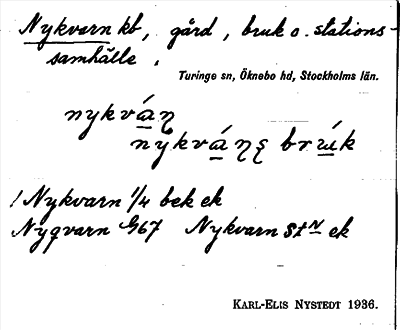 Nykvarn kb, gård, bruk o. stations-
samhälle.
Turinge sn, Öknebo hd, Stockholms län.
nykván̥
nykván̥s brúk
/ Nykvarn 1/4 bek ek
Nyqvarn G67 Nykvarn stn ek
KARL-ELIS NYSTEDT 1936.